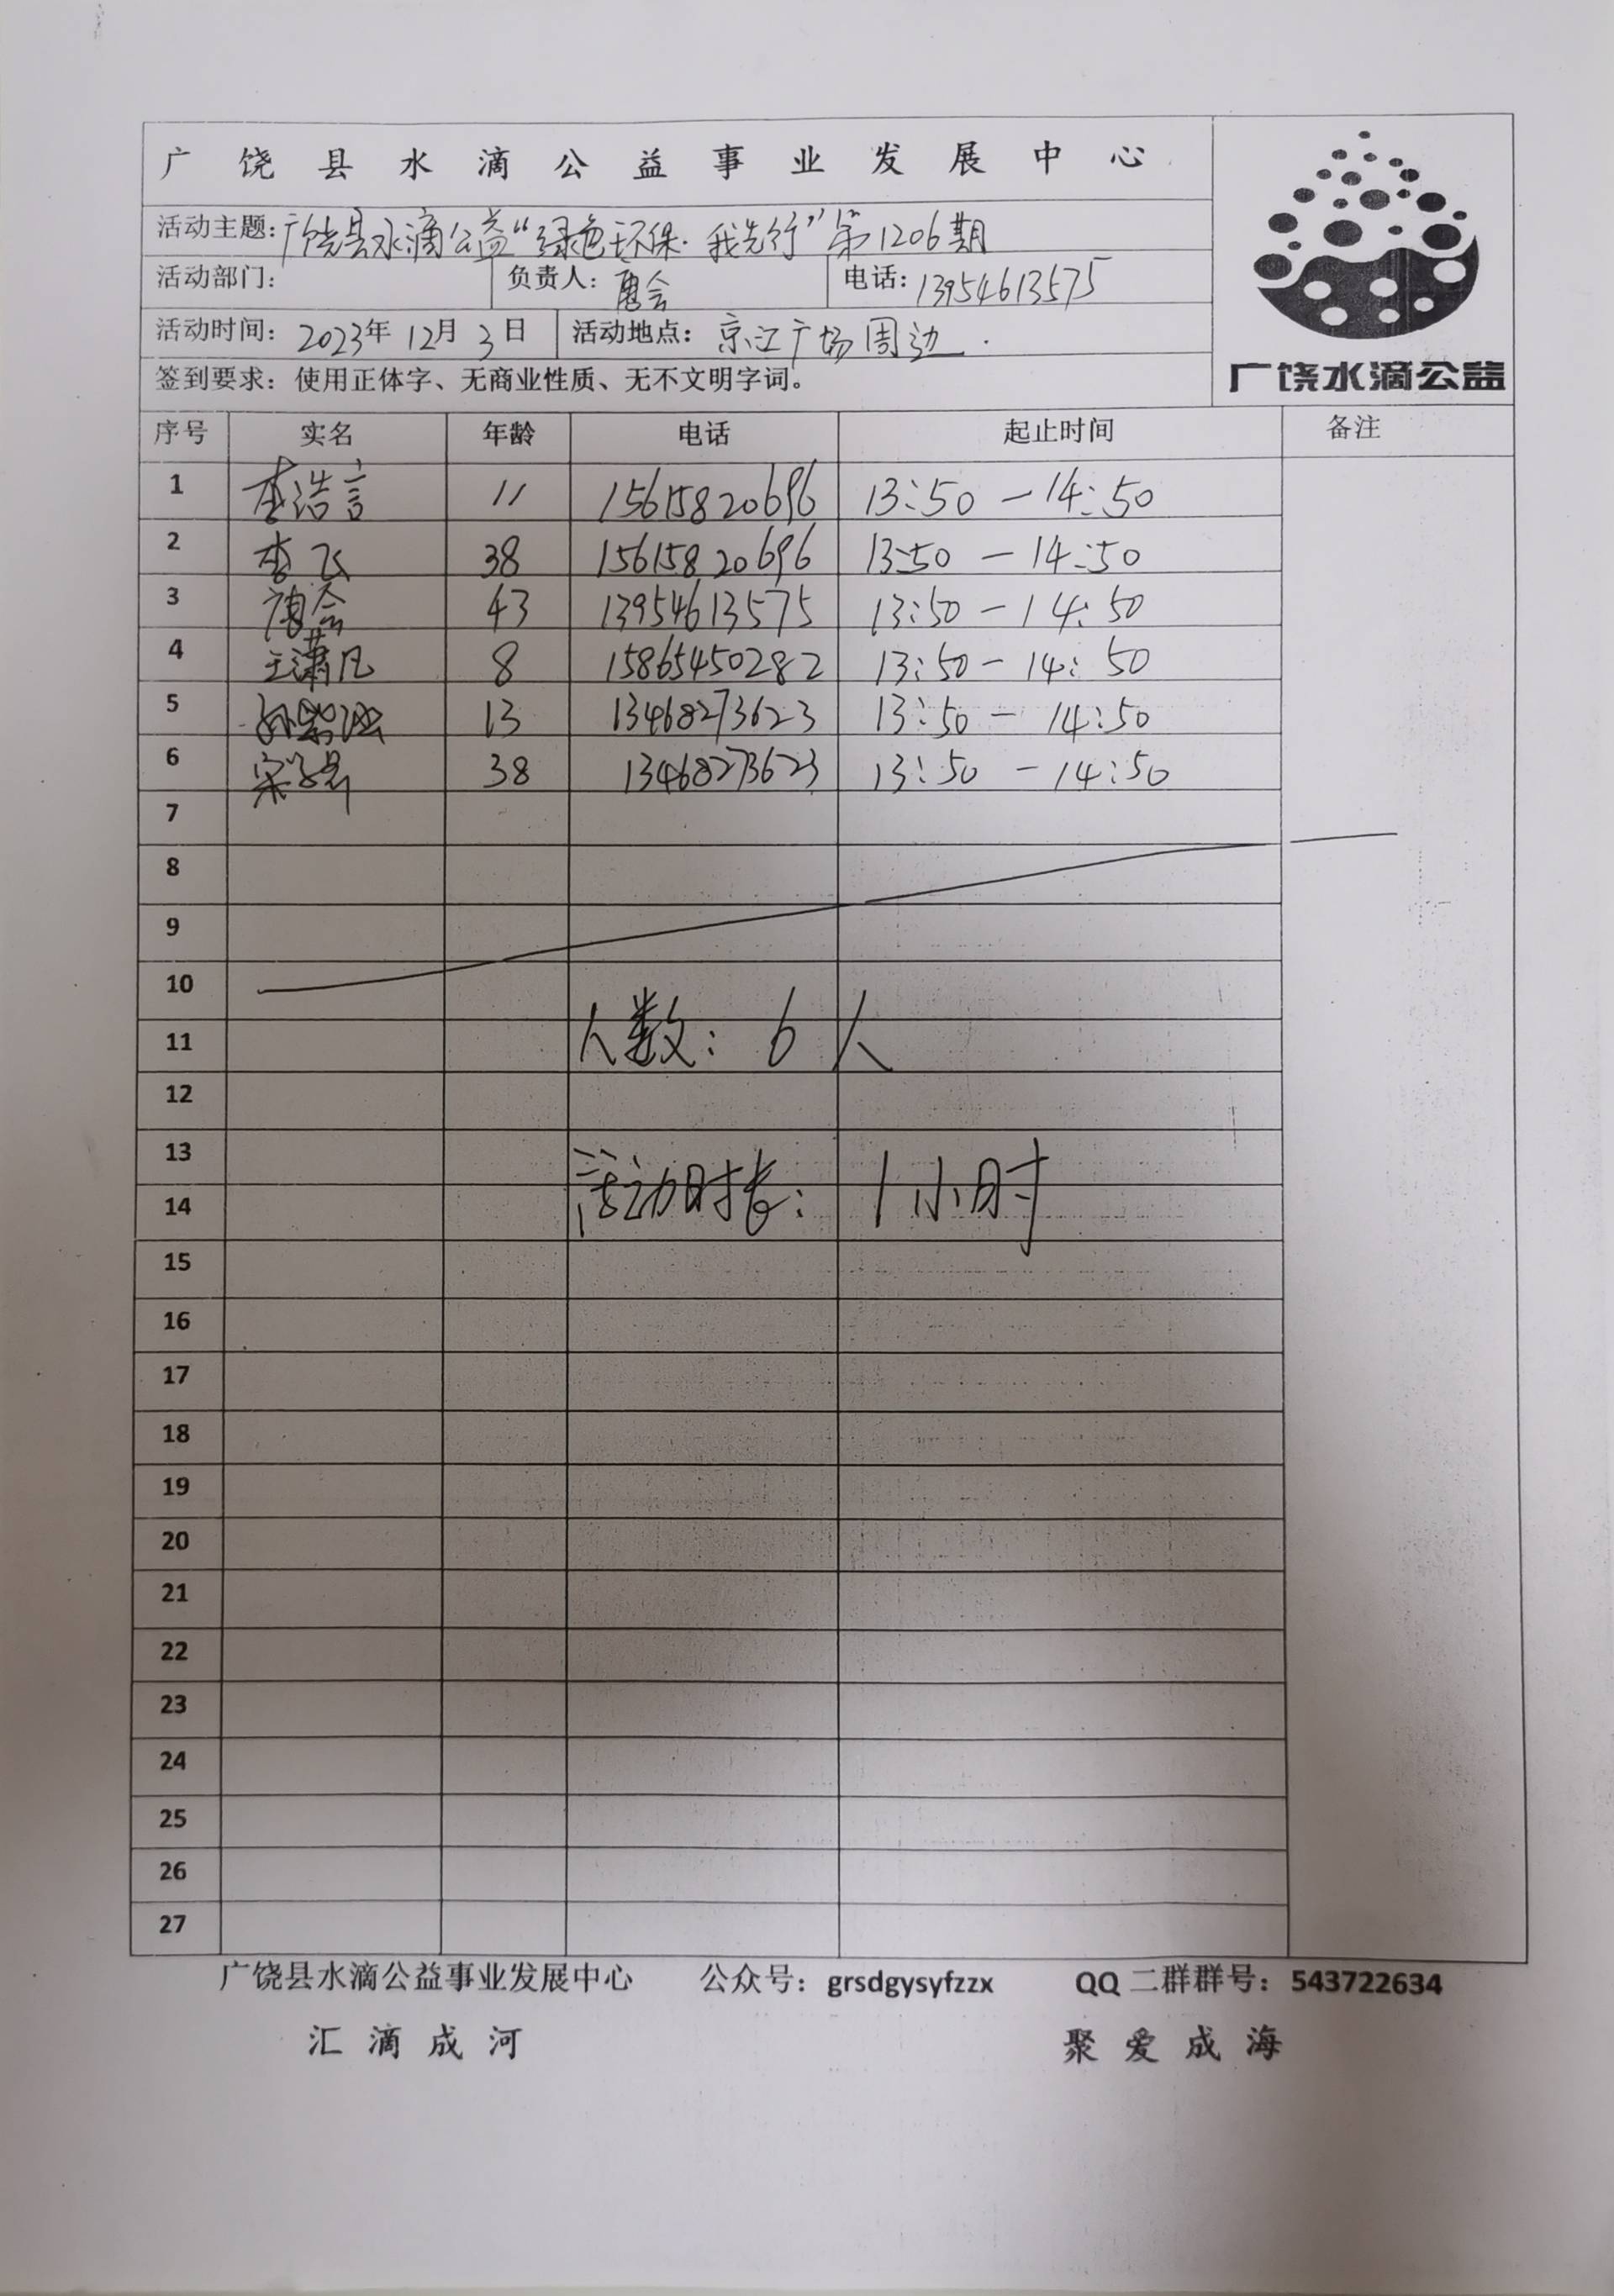 广饶县水滴公益事业发展中心
活动主题: 广饶县水滴公益“绿色环保·我先行”第1206期
活动部门: 负责人: 唐会 电话: 13954613575
活动时间: 2023年 12月 3日 活动地点: 京江广场周边.
签到要求: 使用正体字、无商业性质、无不文明字词。
广饶水滴公益
序号 实名 年龄 电话 起止时间 备注
1 李浩言 11 15615820696 13:50 - 14:50
2 李飞 38 15615820696 13:50 - 14:50
3 唐会 43 13954613575 13:50 - 14:50
4 王潇凡 8 15865450282 13:50 - 14:50
5 13 13468273623 13:50 - 14:50
6 38 13468273623 13:50 - 14:50
7
8
9
10
人数: 6人
11
12
13
活动时长: 1小时
14
15
16
17
18
19
20
21
22
23
24
25
26
27
广饶县水滴公益事业发展中心 公众号: grsdgysyfzzx QQ 二群群号: 543722634
汇滴成河 聚爱成海